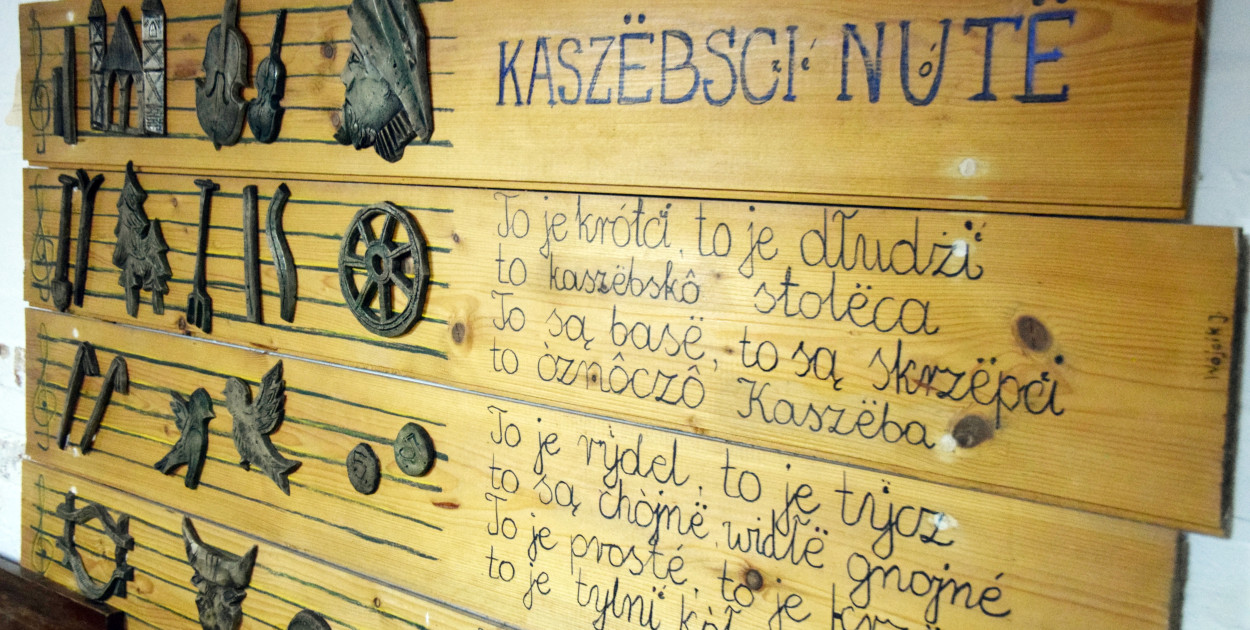 KASZËBSCI NUTË
To je krótci, to je dłudzi
to kaszëbskô stolëca
To są basë, to są skrzëpci
to òznôczô Kaszëba
To je rydel, to je tycz
to są chòjnë, widłë gnojné
To je prosté, to je
to je tylni
Wójcik J.